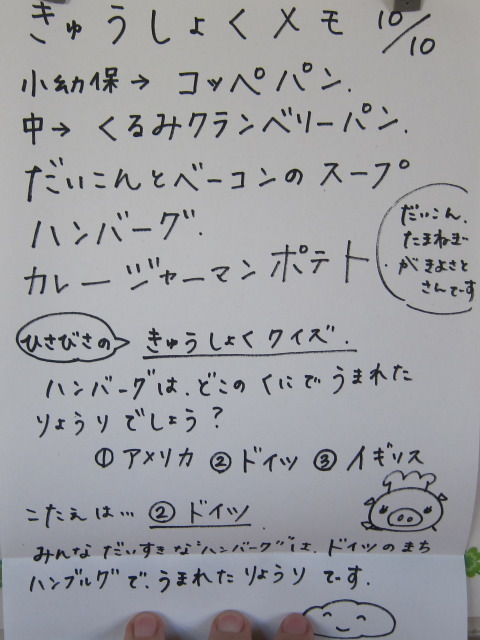 きゅうしょくメモ 10/10
小幼保→ コッペパン.
中→ くるみクランベリーパン.
だいこんとベーコンのスープ
ハンバーグ.
カレージャーマンポテト
だいこん.
たまねぎ
がきよさと
さんでーす
ひさびさの きゅうしょくクイズ.
ハンバーグは、どこのくにでうまれた
りょうりでしょう?
①アメリカ ②ドイツ ③イギリス
こたえは… ②ドイツ
みんなだいすきな"ハンバーグ"は、ドイツのまち
ハンブルグで、うまれたりょうりでーす.